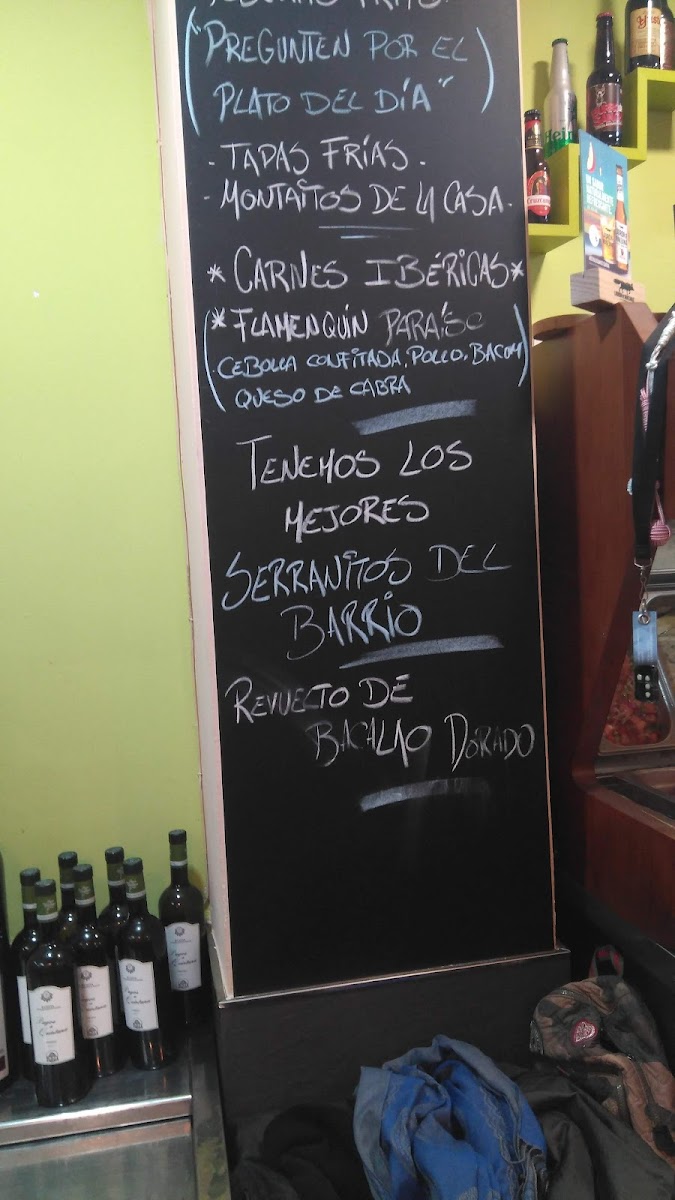 ("PREGUNTEN POR EL
PLATO DEL DÍA")
- TAPAS FRÍAS.
- MONTAÍTOS DE LA CASA.
*CARNES IBÉRICAS*
(*FLAMENQUÍN PARAÍSO
CEBOLLA CONFITADA, POLLO, BACOM
QUESO DE CABRA)
TENEMOS LOS
MEJORES
SERRANITOS DEL
BARRIO
REVUELTO DE
BACALAO DORADO